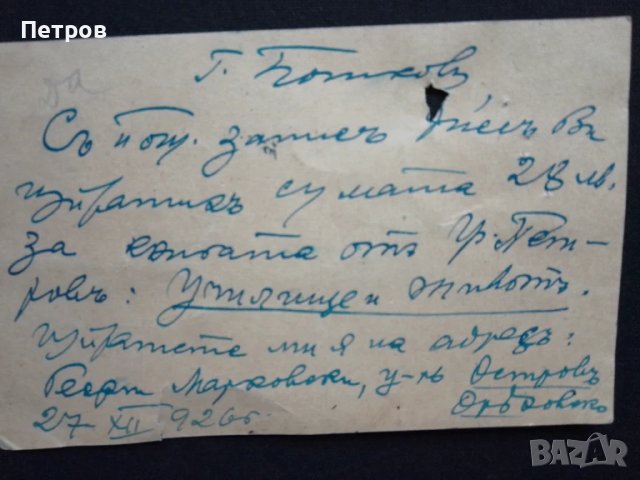 Петров
да
Г. Божков,
Съ пощ. записъ днесъ Ви
изпратихъ сумата 28 лв.
за книгата отъ Гр. Пет-
ровъ: Училище и животъ.
Изпратете ми я на адресъ:
Георги Марковски, у-лъ Островъ
Орѣховско
27 XII 926 г.
BAZAR